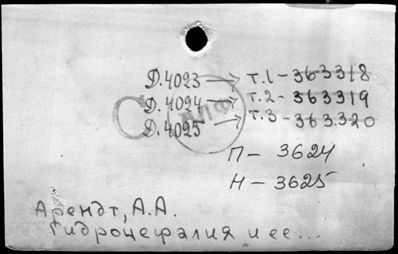 Д.4023 → т.1-363318
Д.4024 → т.2-363319
Д.4025 → т.3-363.320
П-3624
Н-3625
Арендт, А.А.
Гидроцефалия и ее...